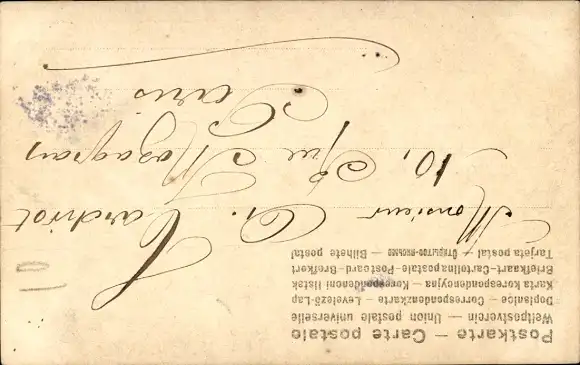 Postkarte — Carte postale
Weltpostverein — Union postale universelle
Dopisnice — Correspondenzkarte — Levelező-Lap
Karta korespondencyjna — Korespondenční lístek
Briefkaart-Cartolina postale-Postcard-Brefkort
Tarjeta postal — Открытое письмо — Bilhete postal
Monsieur
A. Cardriot
10, Rue Mazagran
Paris